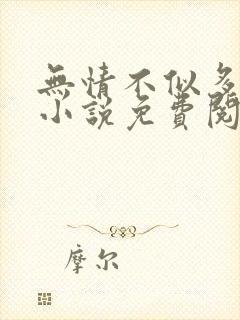 無情不似多
小說免費閱
摩尔